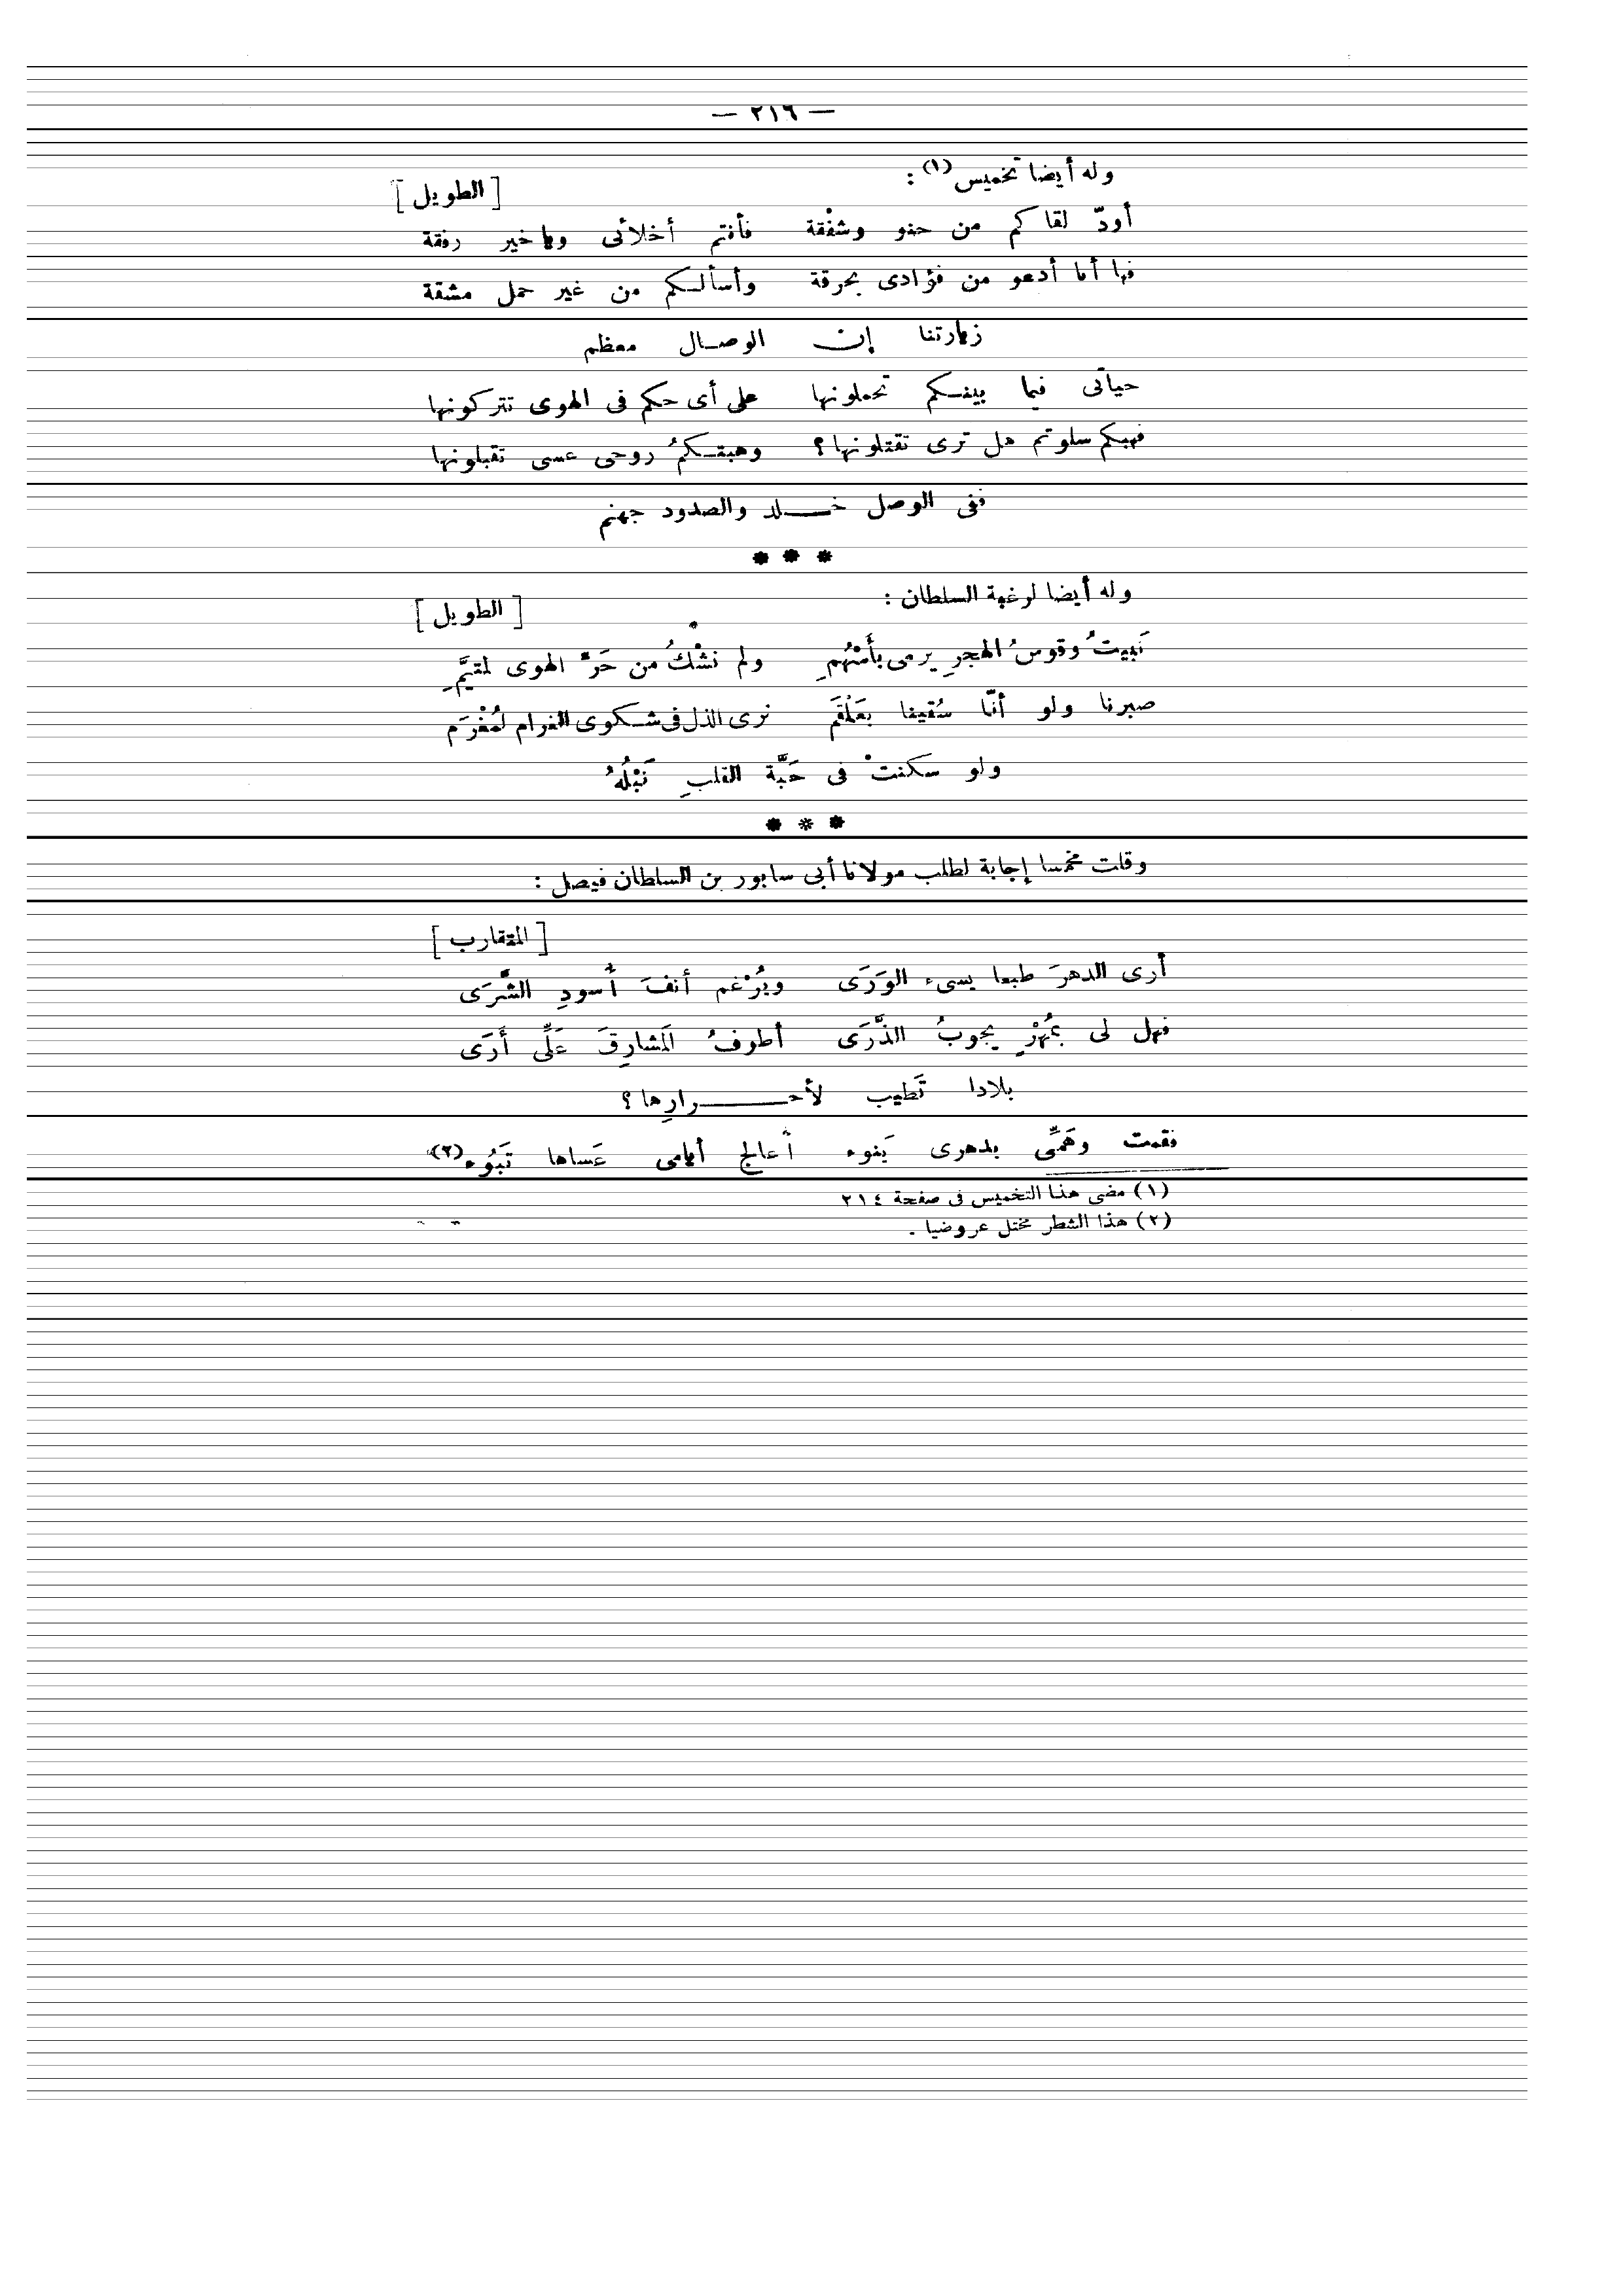 — ٢١٦ —
وله أيضا تخميس (١) :
[ الطويل ]
أودّ لقاكم من حنو وشفْقة فأنتم أخلائى ويا خير رفقة
فها أنا أدعو من فؤادى بحرقة وأسألكم من غير حمل مشقة
زيارتنا إن الوصال معظم
حياتى فيما بينكم تحملونها على أى حكم فى الهوى تتركونها
فهبكم سلوتم هل ترى تقتلونها ؟ وهبتكمُ روحى عسى تقبلونها
ففى الوصل خلد والصدود جهنم
* * *
وله أيضا لرغبة السلطان :
[ الطويل ]
نَبِيتُ وقوسُ الهجرِ يرمى بأَسْهُمِ ولم نشْكُ من حَرِّ الهوى لمتيَّمِ
صبرنا ولو أنّا سُقينا بعَلْقَمَ نرى الذل فى شكوى الغرام لمُغْرَم
ولو سكنتْ فى حَبَّة القلبِ نَبْلُهُ
* * *
وقلت مخمسا إجابة لطلب مولانا أبى سابور بن السلطان فيصل :
[ المتقارب ]
أرى الدهرَ طبعا يسىء الوَرَى ويُرْغم أنفَ أُسودِ الشَّرَى
فهل لى بمُهْرٍ يجوبُ الذَّرَى أطوفُ المَشارِقَ عَلِّى أَرَى
بلادا تَطيب لأحرارِها ؟
فقمت وهَمِّى بدهرى يَنوء أعالج أيامى عَساها تَبُوء (٢)
(١) مضى هذا التخميس فى صفحة ٢١٤
(٢) هذا الشطر مختل عروضيا .